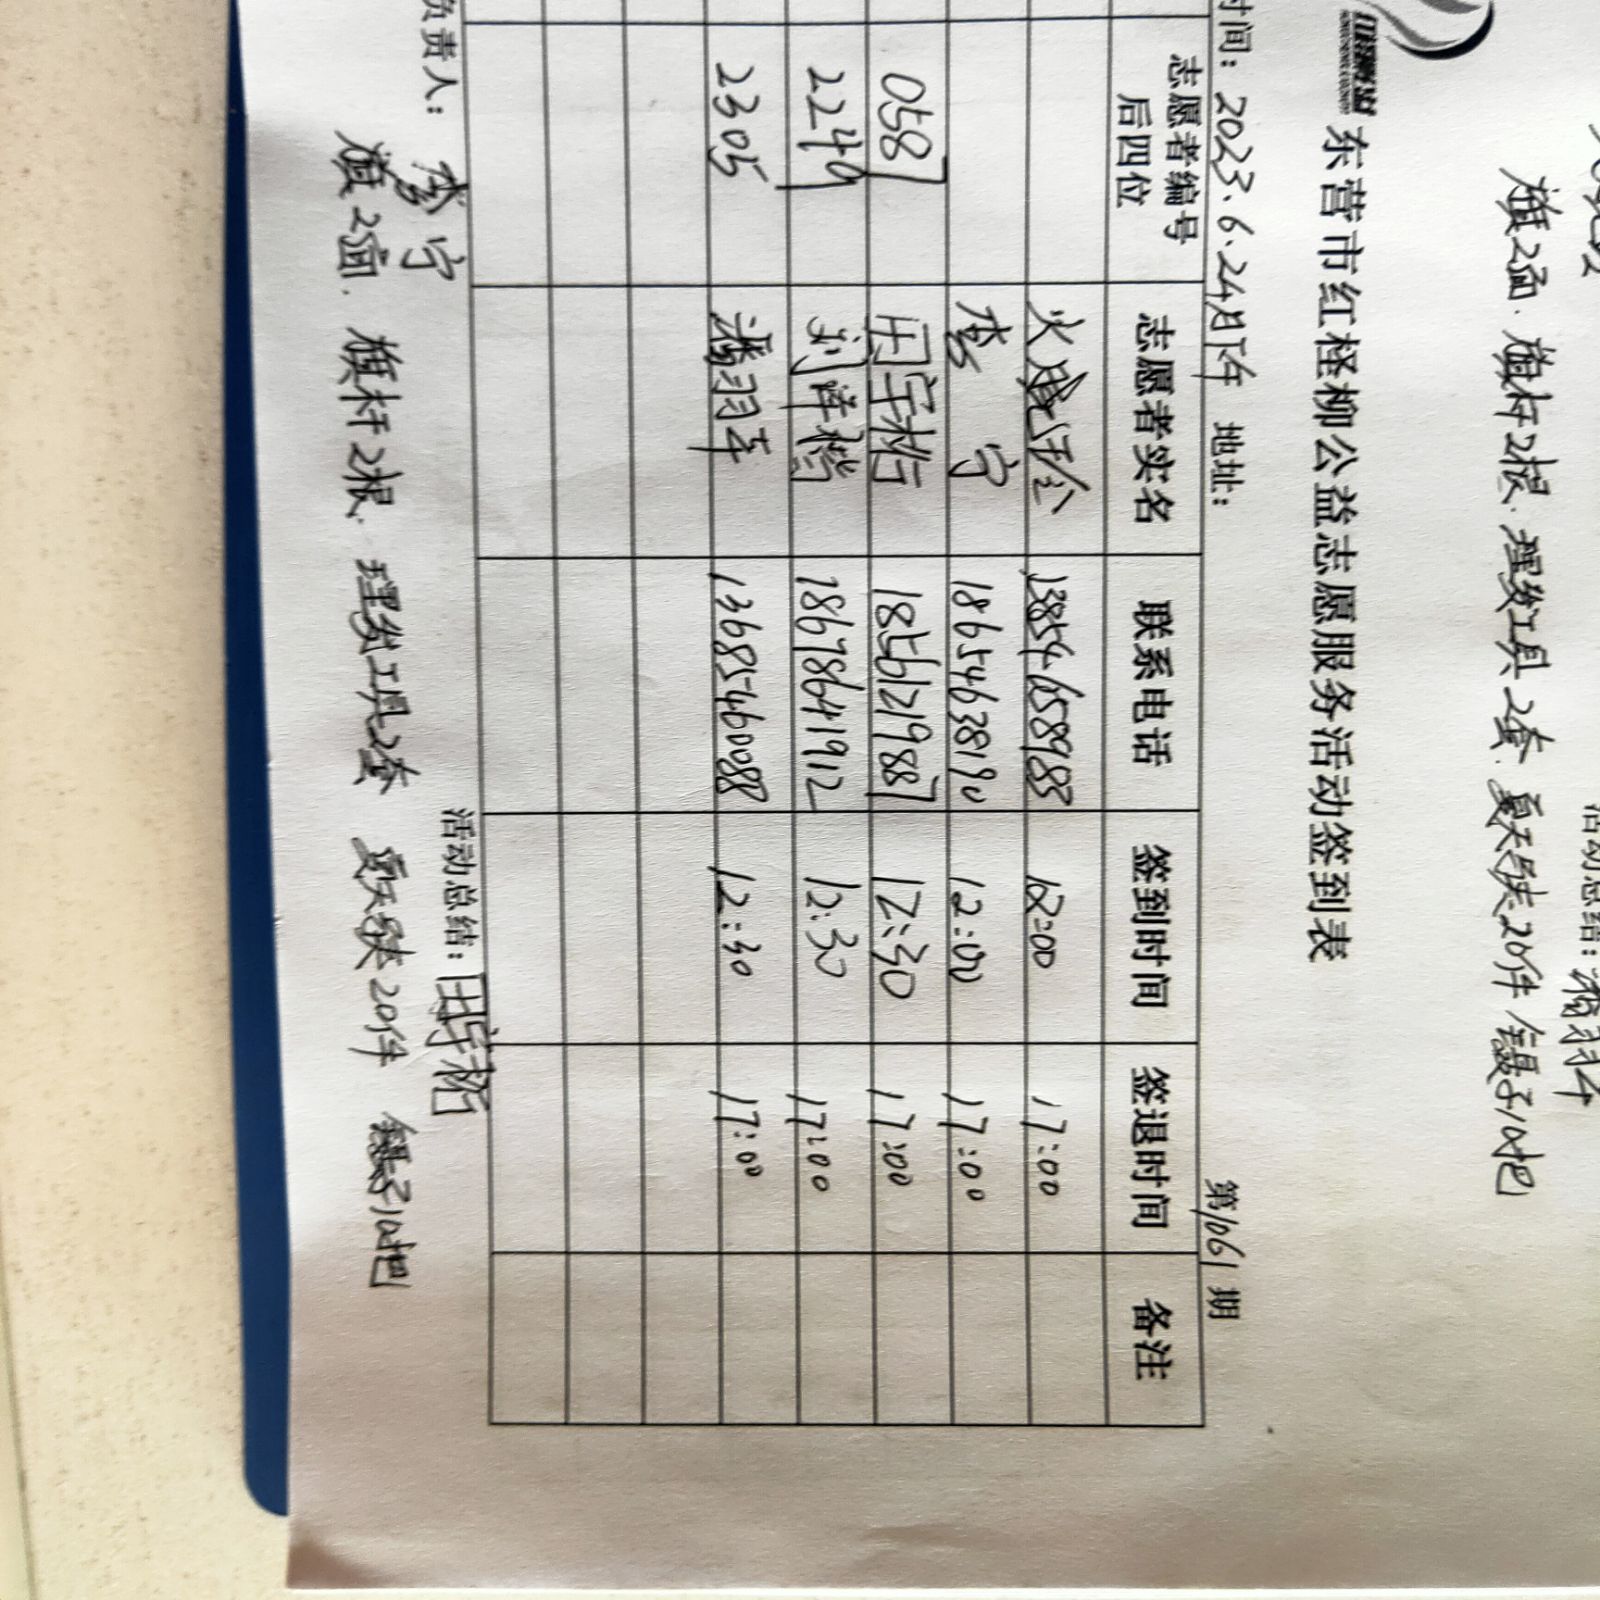 旗2面. 旗杆2根. 理发工具2套. 夏天马夹20件 镊子10把
活动总结:
东营市红柽柳公益志愿服务活动签到表
时间: 2023.6.24月下午 地址: 第1061期
志愿者编号后四位 志愿者实名 联系电话 签到时间 签退时间 备注
13854658985 12:00 17:00
李宁 18654638190 12:00 17:00
0587 田宇栋 18561219887 12:30 17:00
2249 18678641912 12:30 17:00
2305 13685460088 12:30 17:00
负责人: 李宁 活动总结:
旗2面. 旗杆2根. 理发工具2套 夏天马夹20件 镊子10把